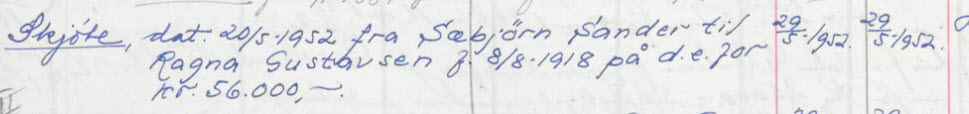 Skjöte, dat. 20/5-1952 fra Sæbjörn Sander til 29/5-1952. 29/5-1952.
Ragna Gustavsen f. 8/8-1918 på d.e. for
kr. 56.000,-.
II